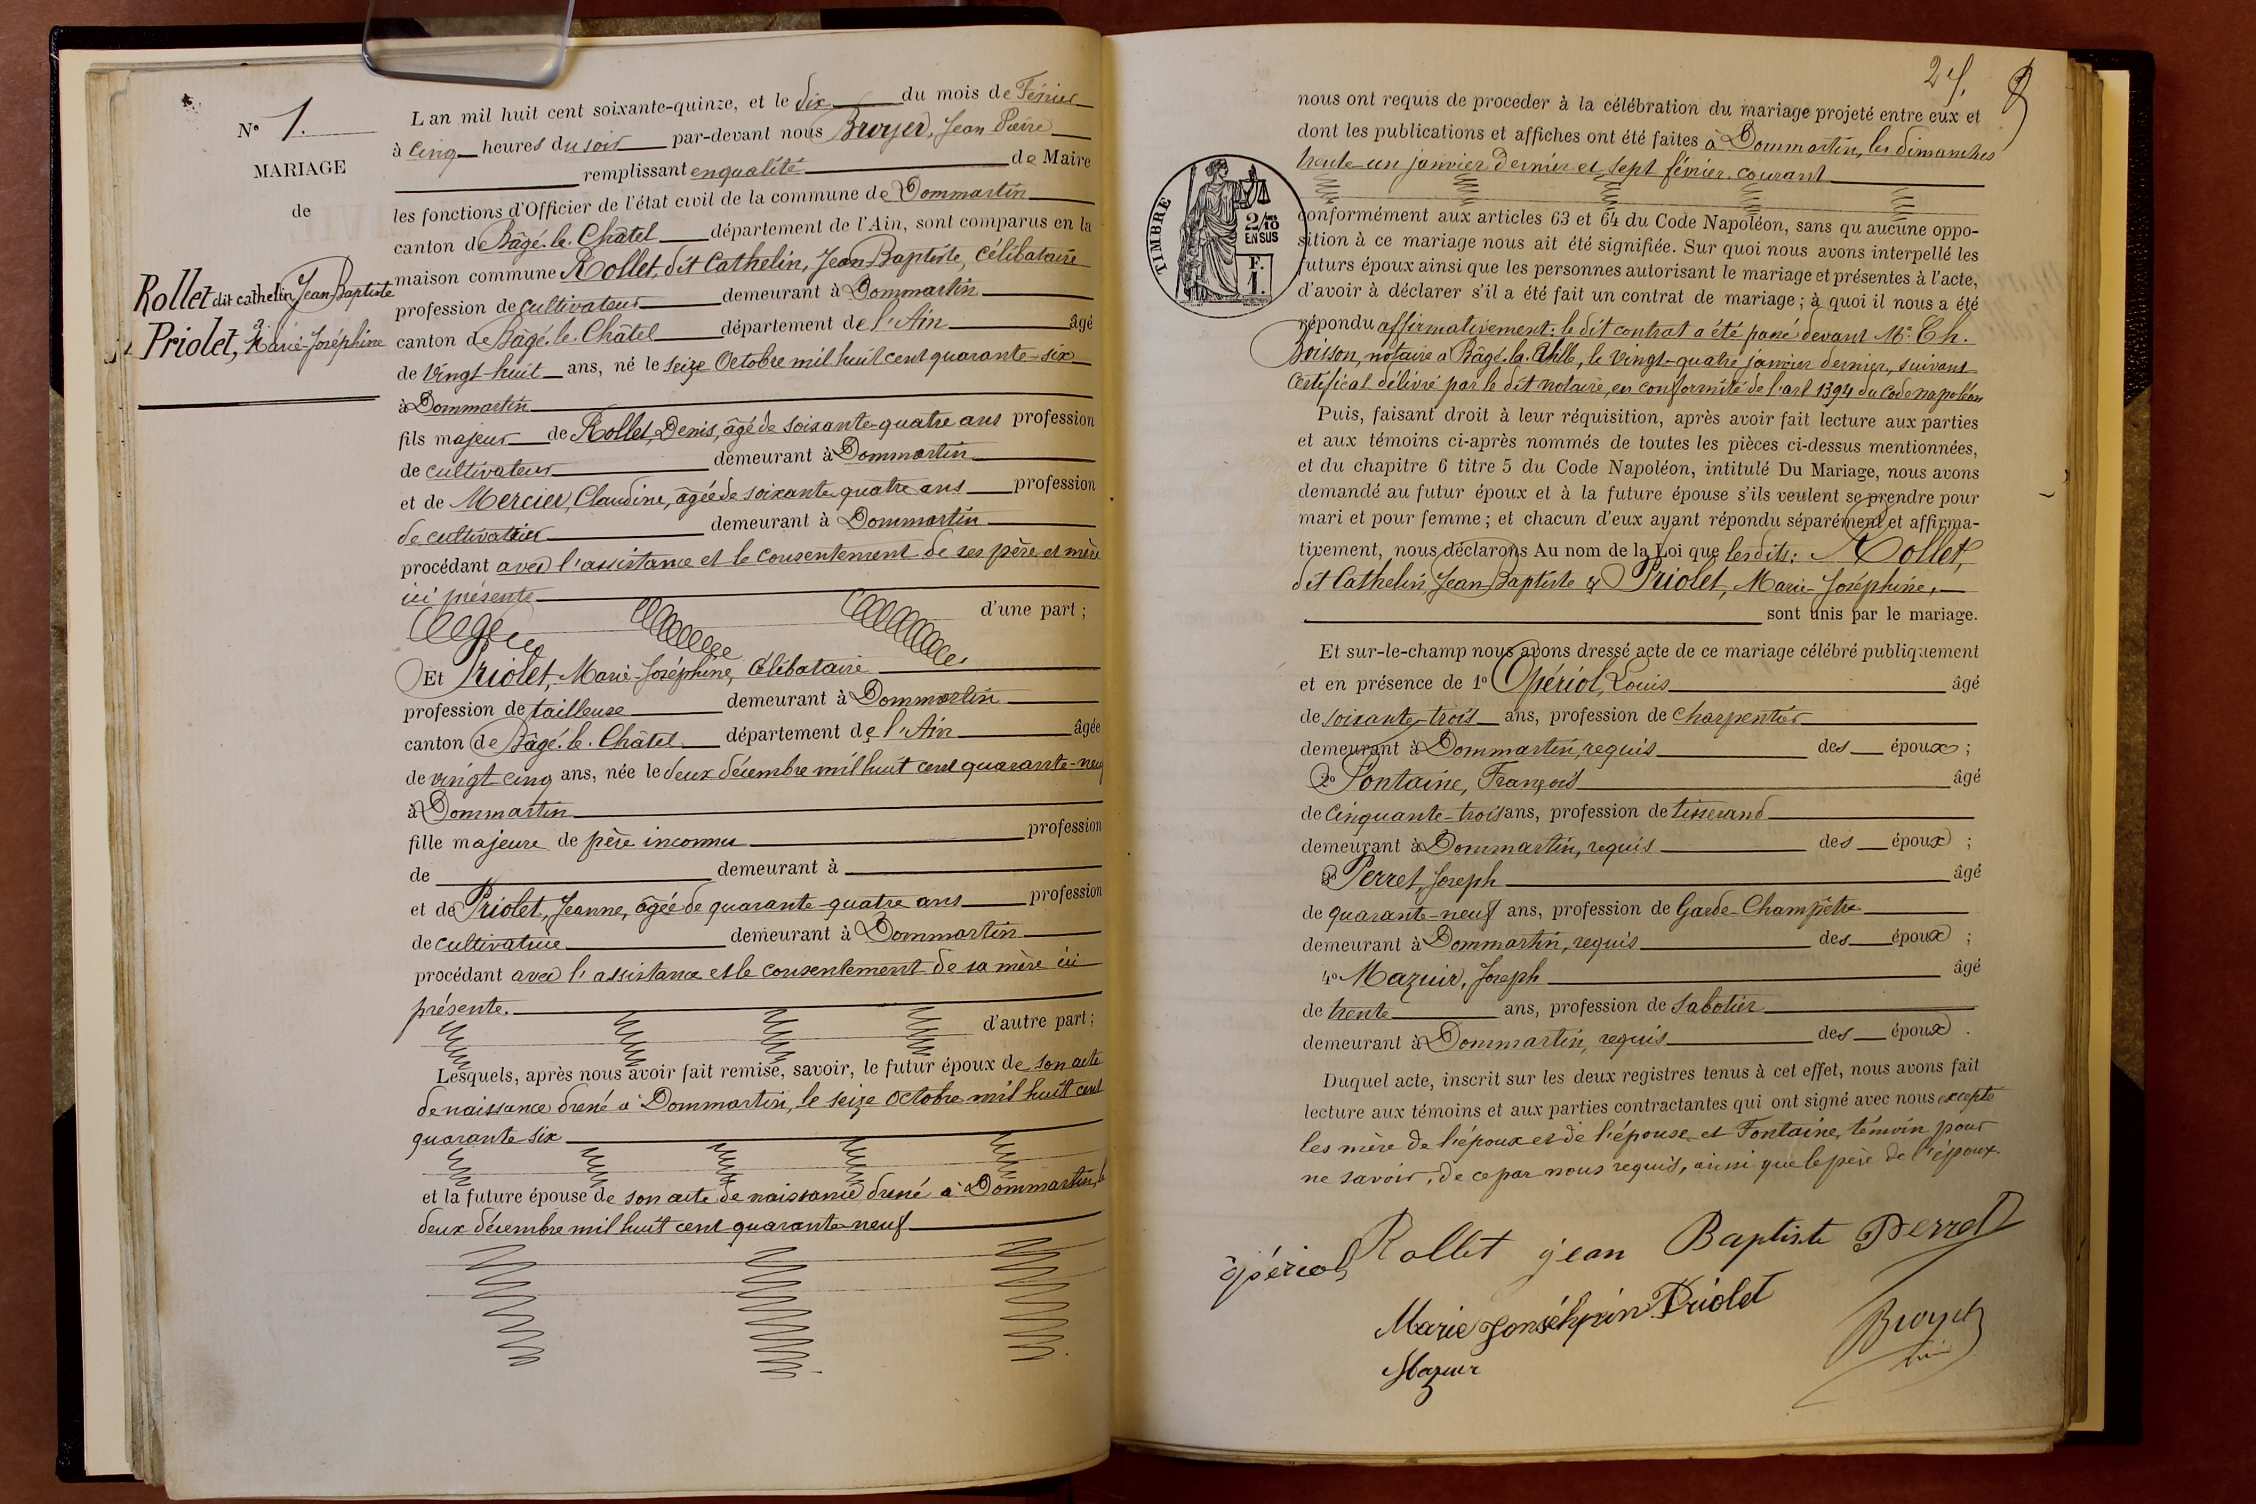 N° 1.
MARIAGE
de
Rollet dit cathelin Jean Baptiste
&
Priolet, Marie-Joséphine
L'an mil huit cent soixante-quinze, et le dix du mois de Février
à cinq heures du soir par-devant nous Broyer, Jean Pierre
remplissant en qualité de Maire
les fonctions d'Officier de l'état civil de la commune de Dommartin
canton de Bâgé-le-Châtel département de l'Ain, sont comparus en la
maison commune Rollet, dit Cathelin, Jean Baptiste, célibataire
profession de cultivateur demeurant à Dommartin
canton de Bâgé-le-Châtel département de l'Ain âgé
de vingt-huit ans, né le seize Octobre mil huit cent quarante-six
à Dommartin
fils majeur de Rollet, Denis, âgé de soixante-quatre ans profession
de cultivateur demeurant à Dommartin
et de Mercier, Claudine, âgée de soixante quatre ans profession
de cultivatrice demeurant à Dommartin
procédant avec l'assistance et le consentement de ses père et mère
ici présents
d'une part ;
Et Priolet, Marie-Joséphine, célibataire
profession de tailleuse demeurant à Dommartin
canton de Bâgé-le-Châtel département de l'Ain âgée
de vingt-cinq ans, née le deux décembre mil huit cent quarante-neuf
à Dommartin
fille majeure de père inconnu profession
de demeurant à
et de Priolet, Jeanne, âgée de quarante-quatre ans profession
de cultivatrice demeurant à Dommartin
procédant avec l'assistance et le consentement de sa mère ici
présente.
d'autre part ;
Lesquels, après nous avoir fait remise, savoir, le futur époux de son acte
de naissance dressé à Dommartin, le seize Octobre mil huit cent
quarante six
et la future épouse de son acte de naissance dressé à Dommartin, le
deux décembre mil huit cent quarante-neuf
nous ont requis de procéder à la célébration du mariage projeté entre eux et
dont les publications et affiches ont été faites à Dommartin, les dimanches
trente-un janvier dernier et sept février courant
TIMBRE
2/10
EN SUS
F.
1.
conformément aux articles 63 et 64 du Code Napoléon, sans qu'aucune oppo-
sition à ce mariage nous ait été signifiée. Sur quoi nous avons interpellé les
futurs époux ainsi que les personnes autorisant le mariage et présentes à l'acte,
d'avoir à déclarer s'il a été fait un contrat de mariage ; à quoi il nous a été
répondu affirmativement : le dit contrat a été passé devant Me Ch.
Boisson, notaire à Bâgé-la-Ville, le vingt-quatre janvier dernier, suivant
certificat délivré par le dit notaire, en conformité de l'art 1394 du Code napoléon
Puis, faisant droit à leur réquisition, après avoir fait lecture aux parties
et aux témoins ci-après nommés de toutes les pièces ci-dessus mentionnées,
et du chapitre 6 titre 5 du Code Napoléon, intitulé Du Mariage, nous avons
demandé au futur époux et à la future épouse s'ils veulent se prendre pour
mari et pour femme ; et chacun d'eux ayant répondu séparément et affirma-
tivement, nous déclarons Au nom de la Loi que lesdits : Rollet,
dit Cathelin, Jean Baptiste & Priolet, Marie-Joséphine,
sont unis par le mariage.
Et sur-le-champ nous avons dressé acte de ce mariage célébré publiquement
et en présence de 1° Opériol, Louis âgé
de soixante-trois ans, profession de charpentier
demeurant à Dommartin, requis des époux ;
2° Fontaine, François âgé
de cinquante-trois ans, profession de tisserand
demeurant à Dommartin, requis des époux ;
3° Perret, Joseph âgé
de quarante-neuf ans, profession de Garde-Champêtre
demeurant à Dommartin, requis des époux ;
4° Mazuir, Joseph âgé
de trente ans, profession de sabotier
demeurant à Dommartin, requis des époux .
Duquel acte, inscrit sur les deux registres tenus à cet effet, nous avons fait
lecture aux témoins et aux parties contractantes qui ont signé avec nous excepté
les mère de l'époux et de l'épouse et Fontaine, témoin pour
ne savoir, de ce par nous requis, ainsi que le père de l'époux.
opériol Rollet jean Baptiste Perret
Marie Jonséhpin Priolet
Broyer
Mazuir